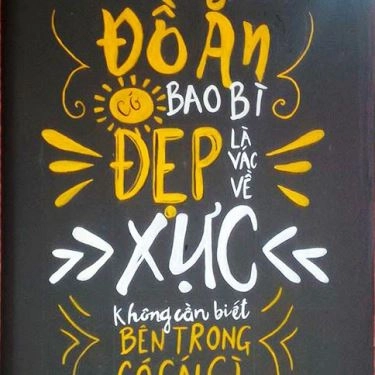 ĐỒ ĂN
CÓ BAO BÌ
ĐẸP LÀ VÁC VỀ
XỰC
Không cần biết
BÊN TRONG
CÓ CÁI GÌ